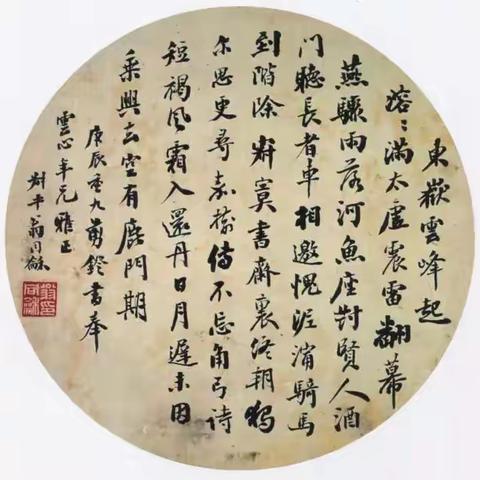 東嶽雲峰起
溶〻滿太虛震雷翻幕
燕驟雨落河魚座對賢人酒
門聽長者車相邀愧泥濘騎馬
到階除寂寞書齋裏終朝獨
尔思更尋嘉樹傳不忘角弓詩
短褐風霜入還丹日月遲未因
乘興去空有鹿門期
庚辰重九剪鐙書奉
雲心年兄雅正
尗平翁同龢